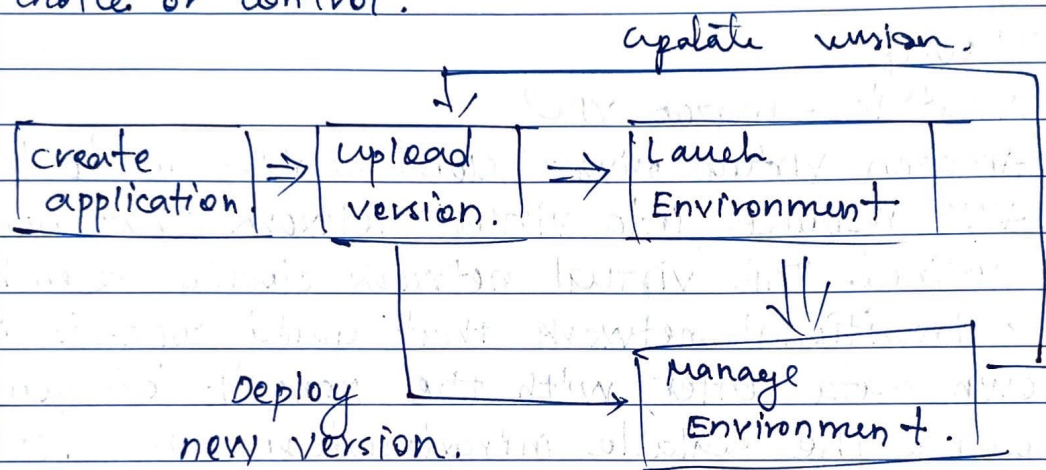 choice or control.
update version.
create
application.
upload
version.
Lauch
Environment
Manage
Environment.
Deploy
new version.